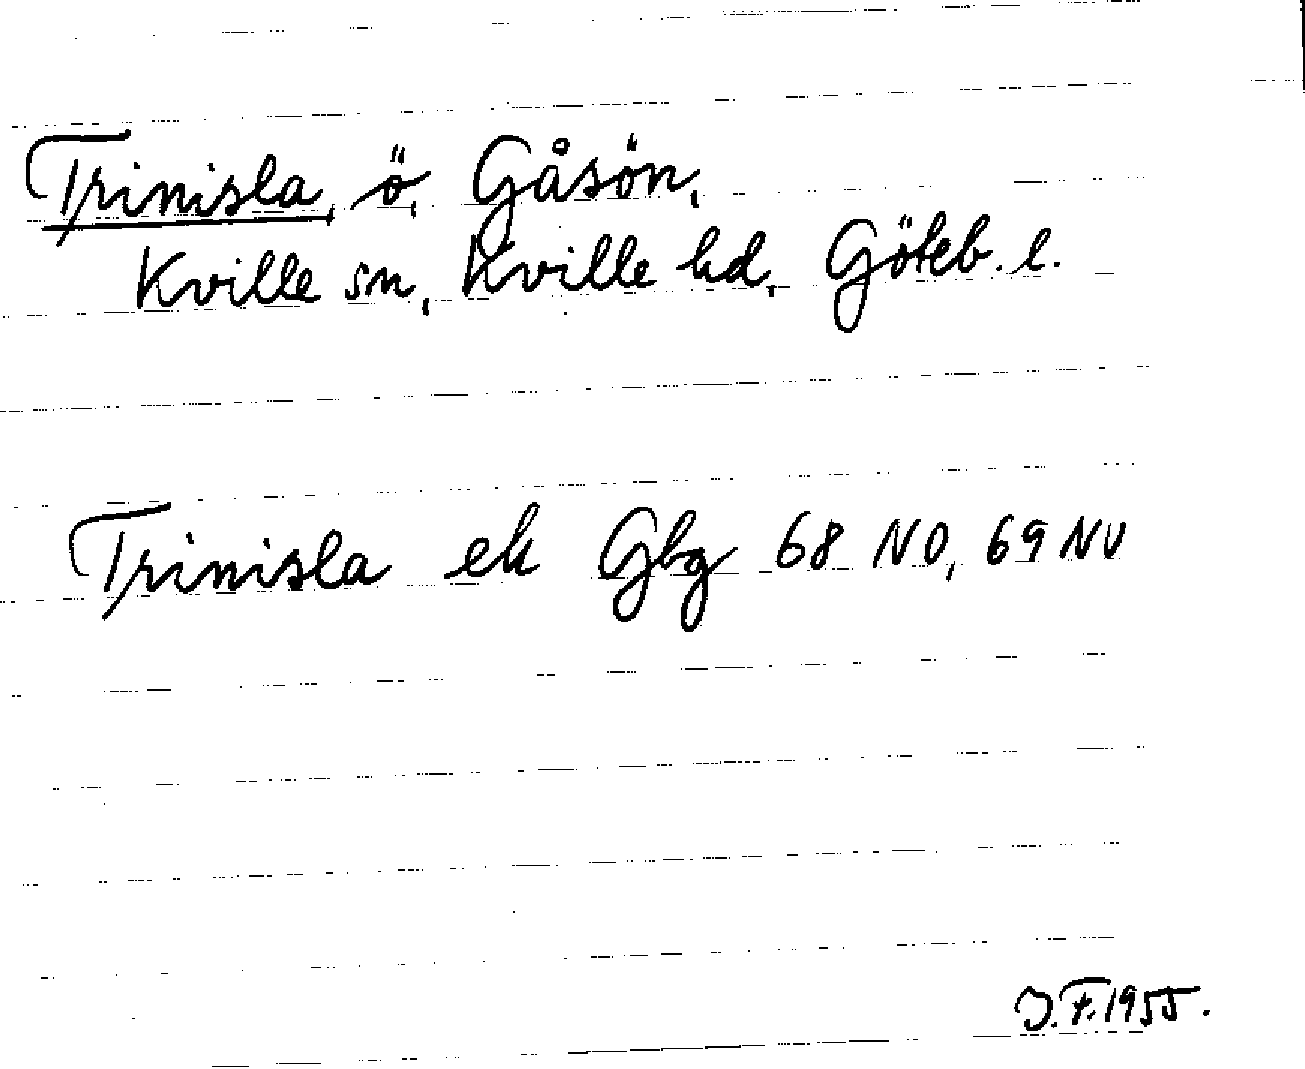 Trinisla, ö, Gåsön,
Kville sn, Kville hd, Göteb. l.
Trinisla ek Gbg 68 NO, 69 NV
J.F. 1955.